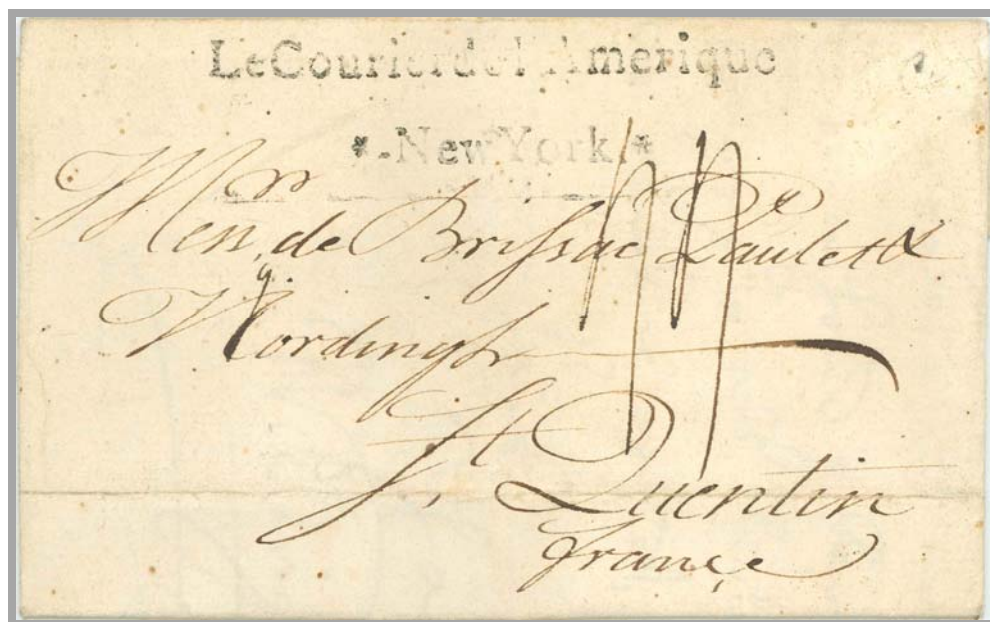 Le Courier de l'Amerique
*.New York.*
Mess.rs de Brissac Paulet &
St Quentin
france